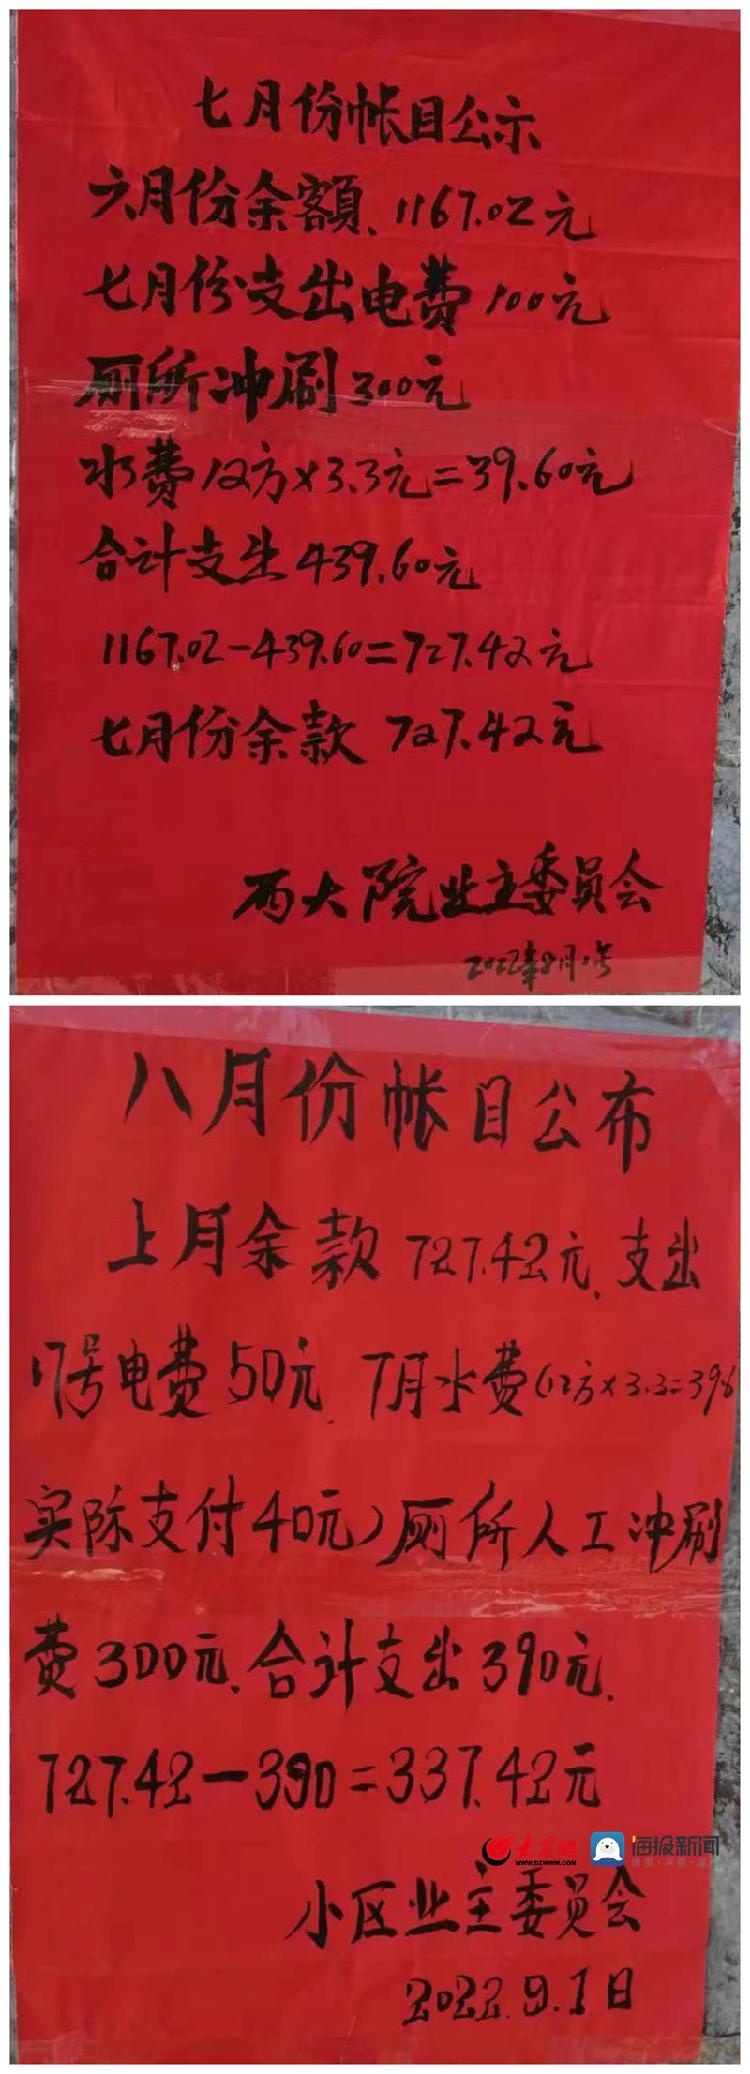 七月份帐目公示
六月份余额、1167.02元
七月份支出电费100元
厕所冲刷300元
水费12方×3.3元=39.60元
合计支出439.60元
1167.02-439.60=727.42元
七月份余款727.42元
西大院业主委员会
2022年8月1号
八月份帐目公布
上月余款727.42元、支出
17号电费50元、7月水费(12方×3.3=39.6
实际支付40元)厕所人工冲刷
费300元、合计支出390元、
727.42-390=337.42元
大众网
WWW.DZWWW.COM
海报新闻
速度·深度·温度
小区业主委员会
2022.9.1日